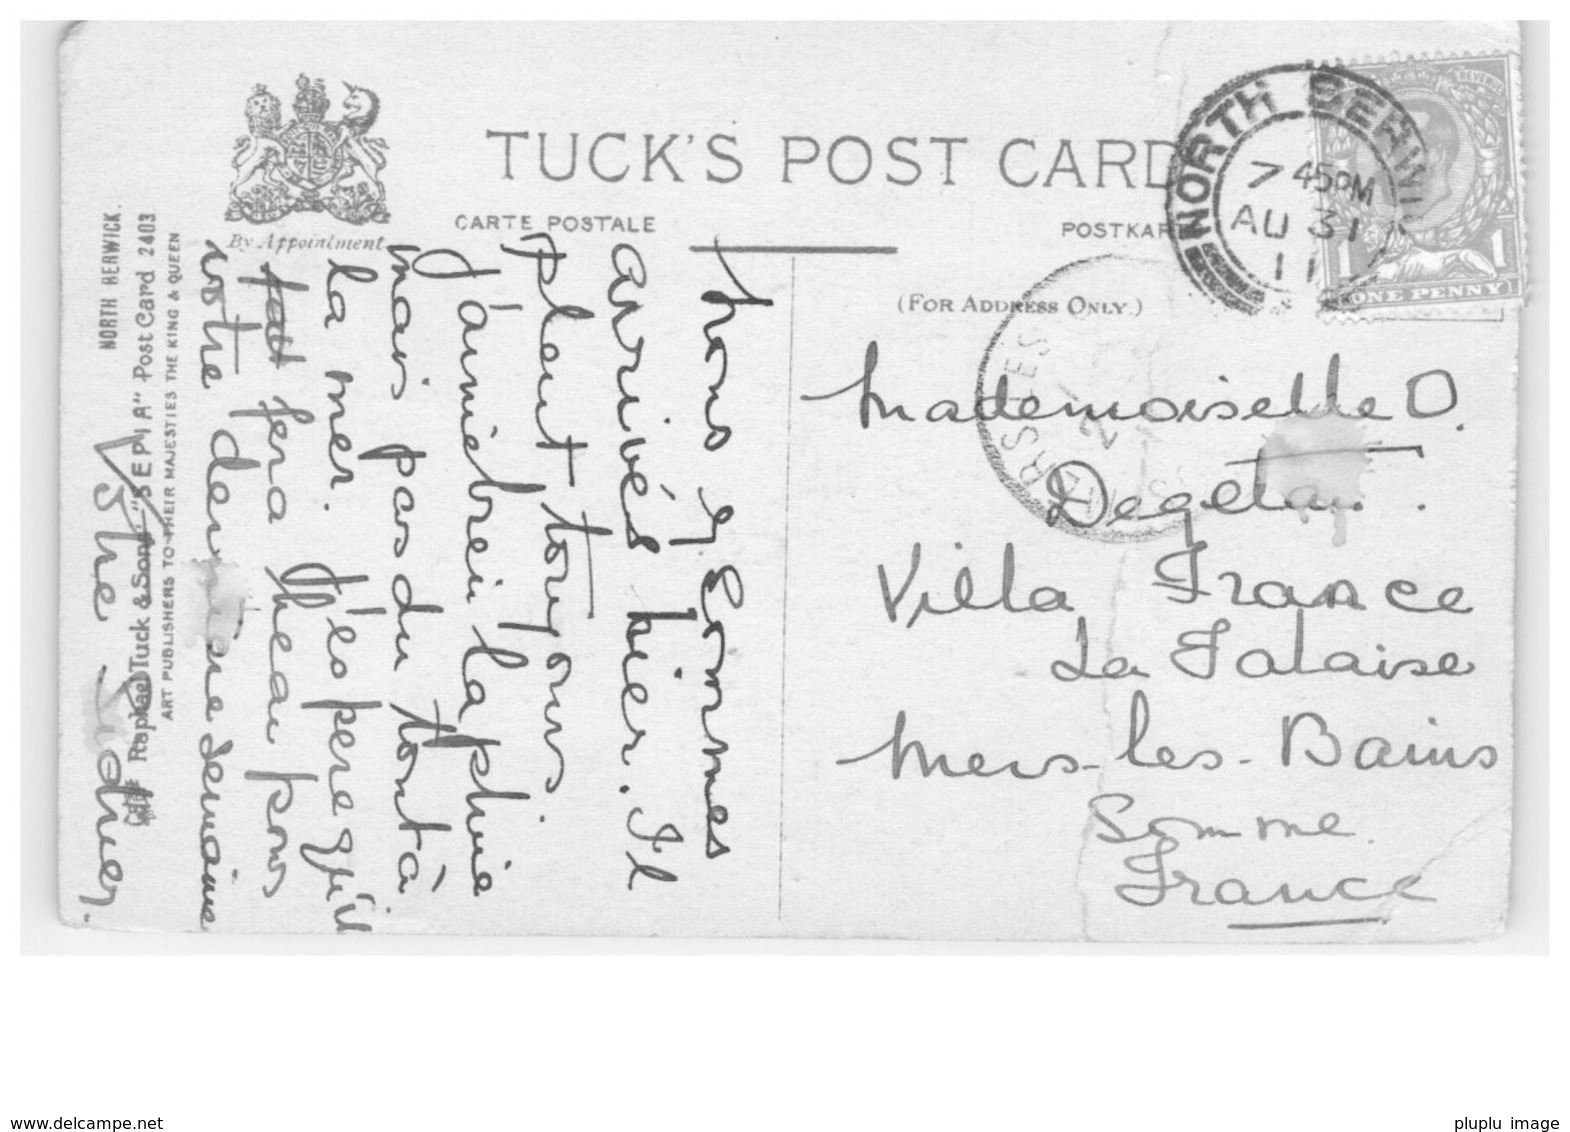 TUCK'S POST CARD
CARTE POSTALE
POSTKARTE
By Appointment
(FOR ADDRESS ONLY.)
NORTH BERWICK
7 45 PM
AU 31
11
REVENUE
1 1
ONE PENNY
NORTH BERWICK.
Raphael Tuck & Sons' "SEPIA" Post Card 2403
ART PUBLISHERS TO THEIR MAJESTIES THE KING & QUEEN
Nous y sommes
arrivés hier. Il
pleut toujours
J'aime bien la pluie
mais pas du tout à
la mer. J'espère qu'il
fera beau pour
votre dernière semaine
Votre
Mademoiselle D.
Degetau.
Villa France
La Falaise
Mers-les-Bains
Somme.
France
www.delcampe.net
pluplu image